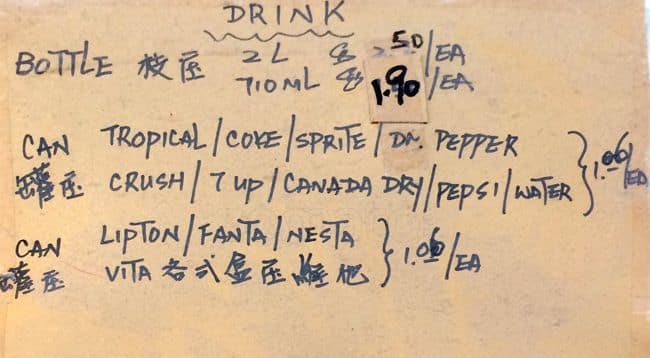 DRINK
BOTTLE 枝座 2L 50/EA
710ML 1.90/EA
CAN TROPICAL/COKE/SPRITE/DR. PEPPER
罐座 CRUSH/7UP/CANADA DRY/PEPSI/WATER } 1.00/EA
CAN LIPTON/FANTA/NESTA
罐座 VITA 各式盒座 維他 } 1.00/EA